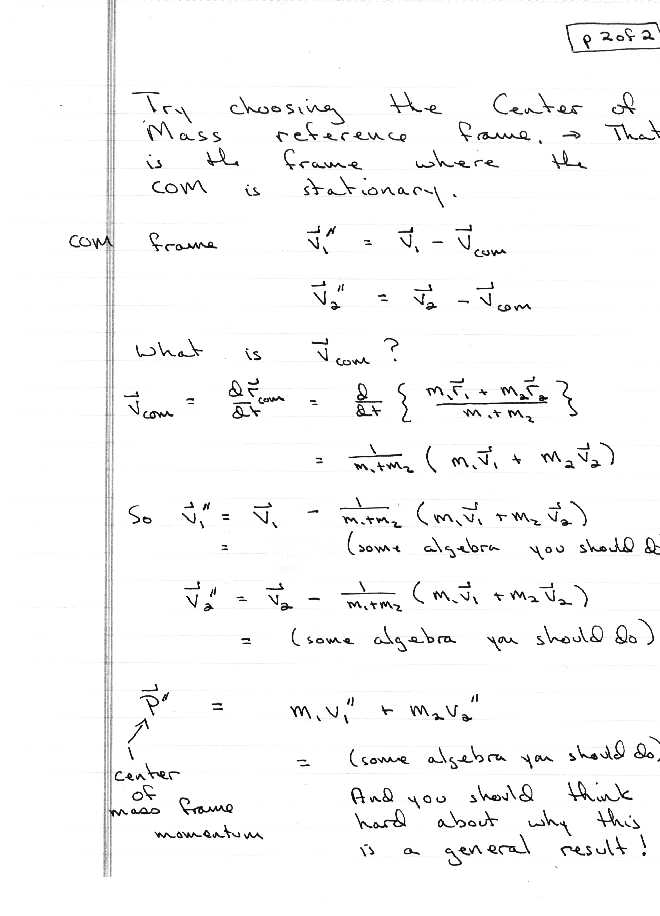 p 2 of 2
Try choosing the Center of
Mass reference frame. → That
is the frame where the
COM is stationary.
COM frame v⃗₁″ = v⃗₁ - v⃗com
v⃗₂″ = v⃗₂ - v⃗com
What is v⃗com ?
v⃗com = dr⃗com/dt = d/dt { (m₁r⃗₁ + m₂r⃗₂)/(m₁+m₂) }
= 1/(m₁+m₂) ( m₁v⃗₁ + m₂v⃗₂)
So v⃗₁″ = v⃗₁ - 1/(m₁+m₂) (m₁v⃗₁ + m₂v⃗₂)
= (some algebra you should do
v⃗₂″ = v⃗₂ - 1/(m₁+m₂) (m₁v⃗₁ + m₂v⃗₂)
= (some algebra you should do)
p⃗″ = m₁v₁″ + m₂v₂″
= (some algebra you should do)
center
of
mass frame
momentum
And you should think
hard about why this
is a general result!